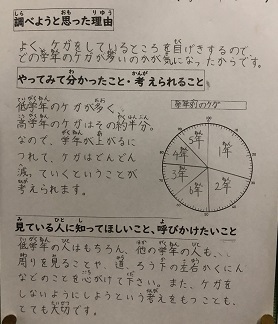 調べようと思った理由
よく、ケガをしているところを目げきするので、
どの学年のケガが多いのかが気になったからです。
やってみて分かったこと・考えられること
低学年のケガが多く、
高学年のケガはその約半分。
なので、学年が上がるに
つれて、ケガはどんどん
減っていくということが
考えられます。
学年別のケガ
5年
1年
4年
3年
6年
2年
見ている人に知ってほしいこと、呼びかけたいこと
低学年の人はもちろん、他の学年の人も、
周りを見ることや、道、ろう下の左右かくにん
などのことを心がけて下さい。また、ケガを
しないようにしようという考えをもつことも、
とても大切です。